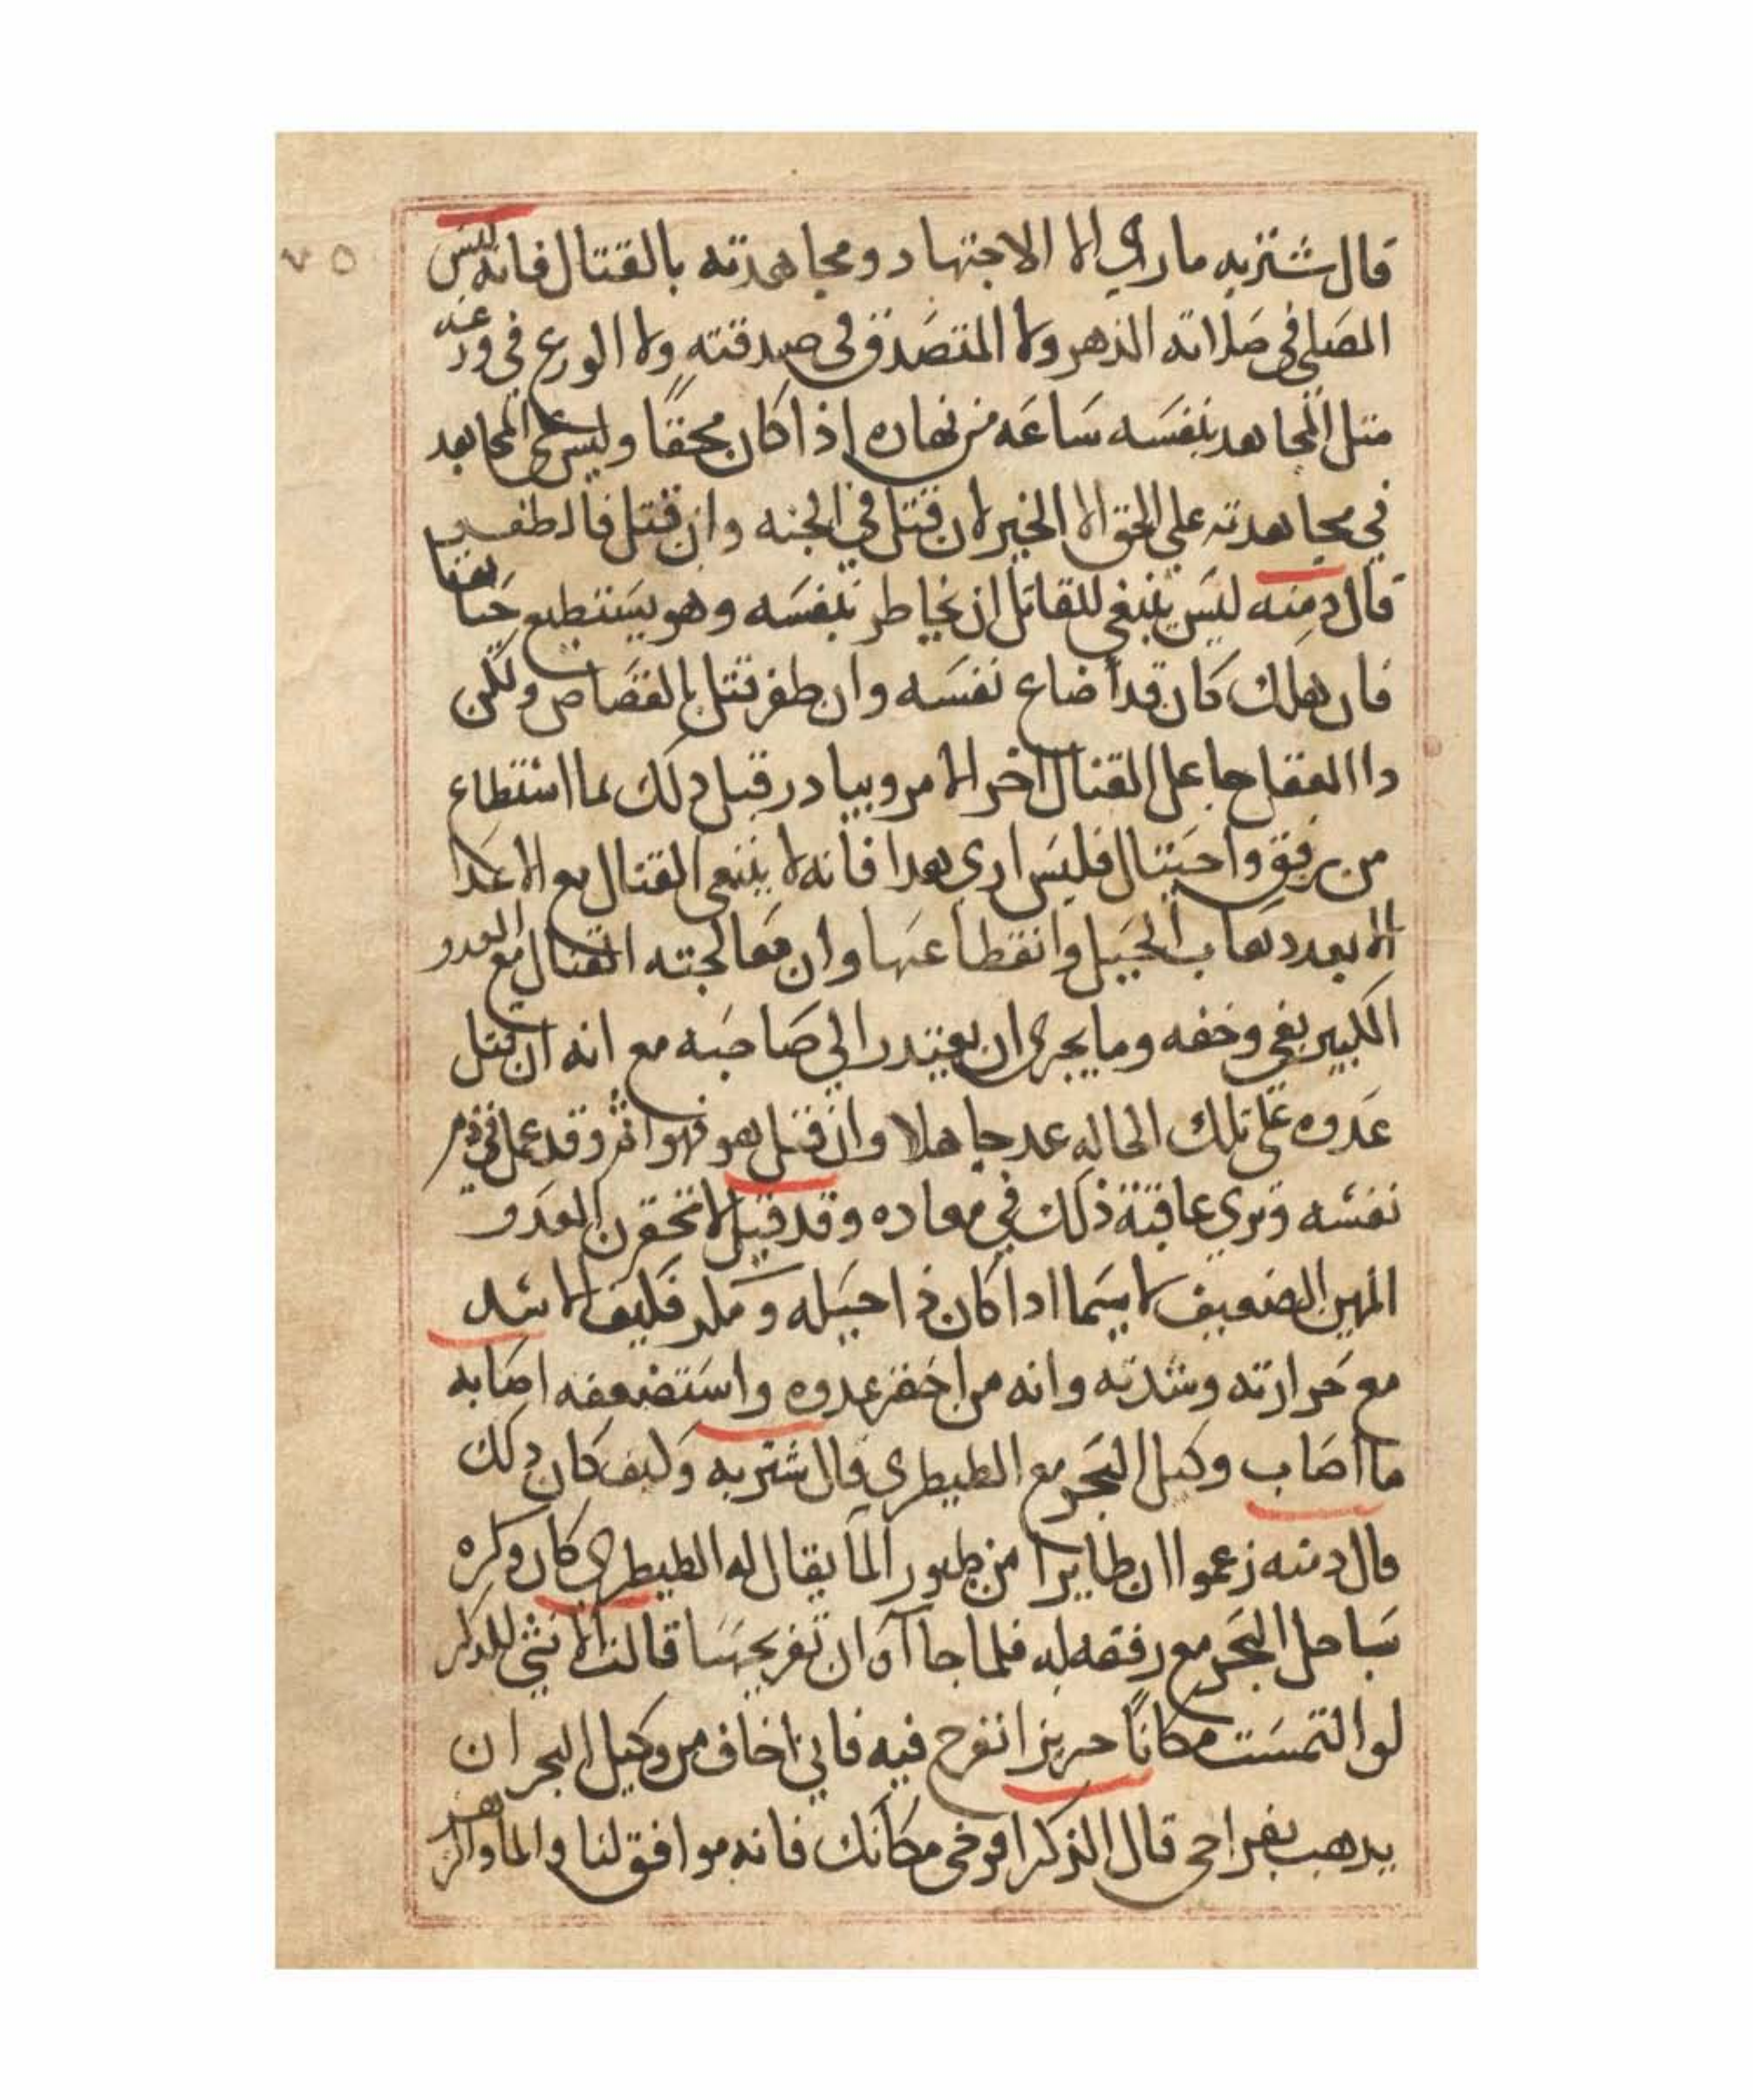 ٧٥
قال شتربه ما ارى الا الاجتهاد ومجاهدته بالقتال فانه ليس
المصلي في صلاته الدهر ولا المتصدق في صدقته ولا الورع في ورعه
مثل المجاهد بنفسه ساعه من نهاره اذا كان محقا وليس على المجاهد
في مجاهدته على الحق الا الخير لان قتل في الجنه وان قتل فالظفر
قال دمنه ليس ينبغي للقاتل ان يخاطر بنفسه وهو يستطيع
فان هلك كان قد اضاع نفسه وان ظفر قتل بالقصاص ولكن
دا العقل جاعل القتال اخر الامر ويبادر قبل دلك بما استطاع
من رفق واحتيال فليس ارى هدا فانه لا ينبغي القتال مع الاعدا
الا بعد دهاب الحيل وانقطاعها وان معالجته القتال مع العدو
الكبير بغي وخفه وما يجرى ان يعتدر الي صاحبه مع انه ان قتل
عدوه على تلك الحاله عد جاهلا وان قتل هو فهو اثم وقد عمل في دم
نفسه وترى عاقبة ذلك في معاده وقد قيل لا تحقرن العدو
المهين الضعيف لا سيما ادا كان ذا حيله ومكر فكيف الاسد
مع حرارته وشدته وانه من احقر عدوه واستضعفه اصابه
ما اصاب وكيل البحر مع الطيطرى قال شتربه وكيف كان دلك
قال دمنه زعموا ان طايرا من طيور الما يقال له الطيطرى كان وكره
بساحل البحر مع رفقه له فلما جا آوان تفريخها قالت الانثى للدكر
لو التمست مكانا حريزا نفرخ فيه فاني اخاف من وكيل البحر ان
يدهب بفراخي قال الذكر افرخي مكانك فانه موافق لنا والما والزهر